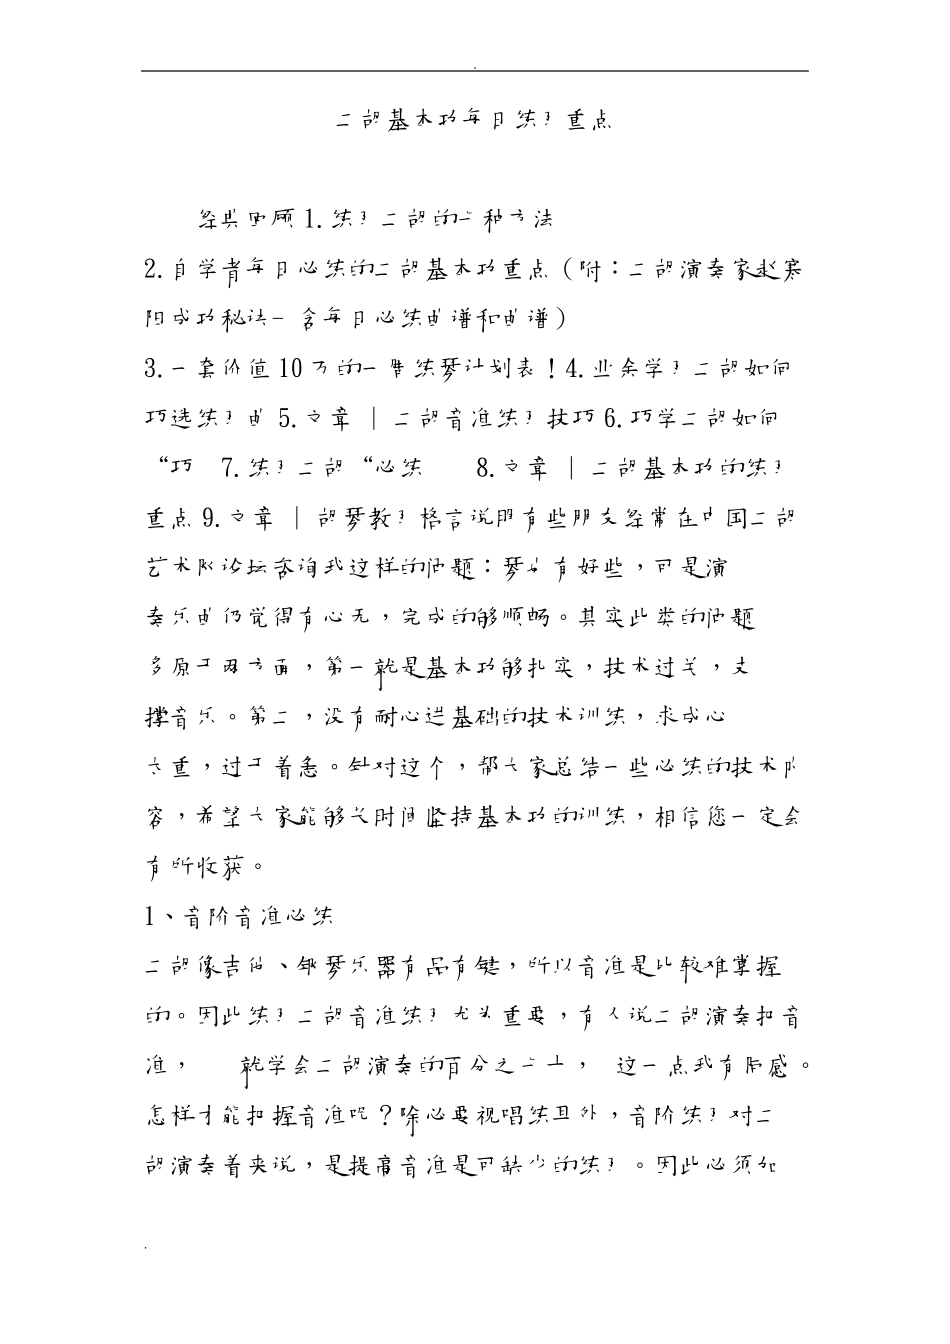 二胡基本功每日练习重点
经典回顾 1.练习二胡的六种方法
2.自学者每日必练的二胡基本功重点（附：二胡演奏家赵寒
阳成功秘诀－含每日必练曲谱和曲谱）
3.一套价值 10 万的一年练琴计划表！4.业余学习二胡如何
巧选练习曲 5.文章｜二胡音准练习技巧 6.巧学二胡如何
“巧 7.练习二胡“必练 8.文章｜二胡基本功的练习
重点 9.文章｜胡琴教习格言说明有些朋友经常在中国二胡
艺术网论坛咨询我这样的问题：琴也有好些，可是演
奏乐曲仍觉得有心无，完成的够顺畅。其实此类的问题
多原于两方面，第一就是基本功够扎实，技术过关，支
撑音乐。第二，没有耐心进基础的技术训练，求成心
太重，过于着急。针对这个，帮大家总结一些必练的技术内
容，希望大家能够长时间坚持基本功的训练，相信您一定会
有所收获。
1、音阶音准必练
二胡像吉他、钢琴乐器有品有键，所以音准是比较难掌握
的。因此练习二胡音准练习尤为重要，有人说二胡演奏把音
准， 就学会二胡演奏的百分之六十， 这一点我有同感。
怎样才能把握音准呢？除必要视唱练耳外，音阶练习对二
胡演奏者来说，是提高音准是可缺少的练习。因此必须加